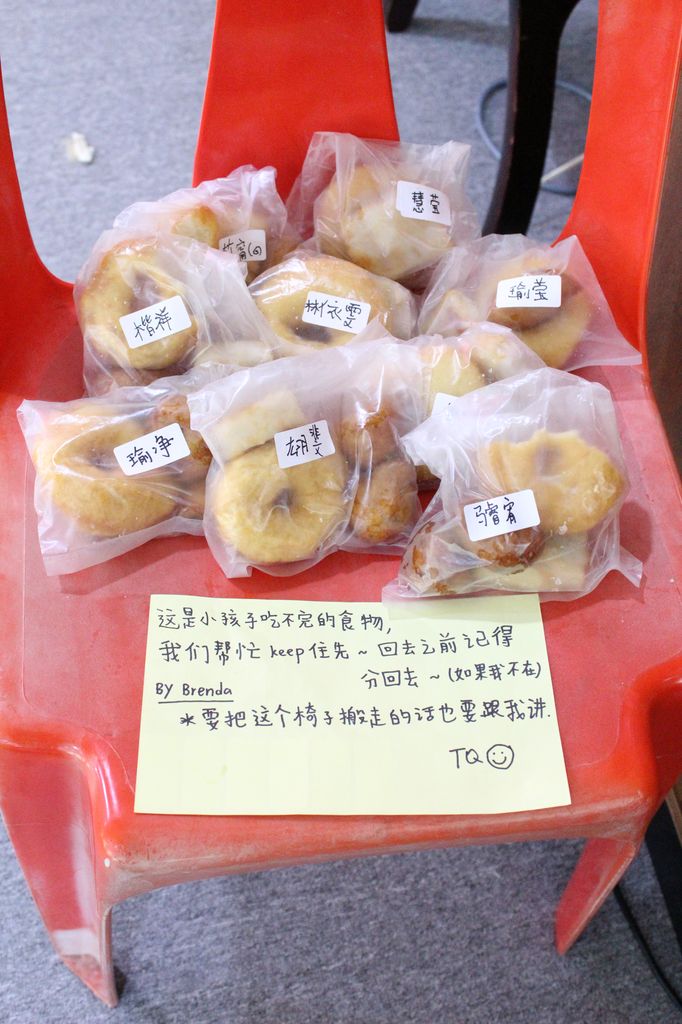 慧莹
楷祥
林依雯
瑜莹
瑜净
胡斐文
马睿宥
这是小孩子吃不完的食物,
我们帮忙 keep 住先 ~ 回去之前记得
分回去 ~ (如果我不在)
BY Brenda
* 要把这个椅子搬走的话也要跟我讲.
TQ ☺